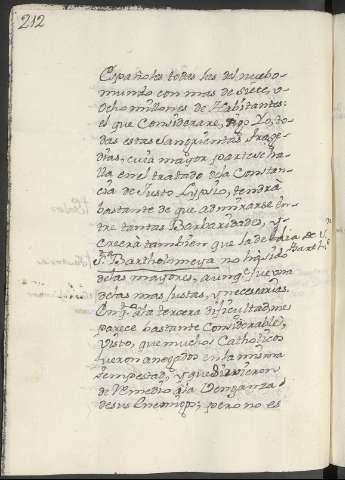 212
Españoles todas las del nuebo
mundo con mas de siete, v
ocho millones de Habitantes:
el que Considerare, digo Yo, to-
das estas Sangrientas trage-
dias, cuia mayor parte se ha-
lla en el tratado de la Constan-
cia de Justo Lypsio, tendrá
bastante de que admirarse en-
tre tantas Barbaridades, y
creerà tambien que la de el dia de S.n
S.n Bartholomeya no ha sido
delas mayores, aunque fue una
delas mas Justas, y necesarias.
En q.to à la tercera dificultad, me
parece bastante Considerable,
Visto, que muchos Catholicos
fueron anegados en la misma
tempestad, y que sirvieron
de Remedio à la Venganza d
de sus Enemigos; pero no es